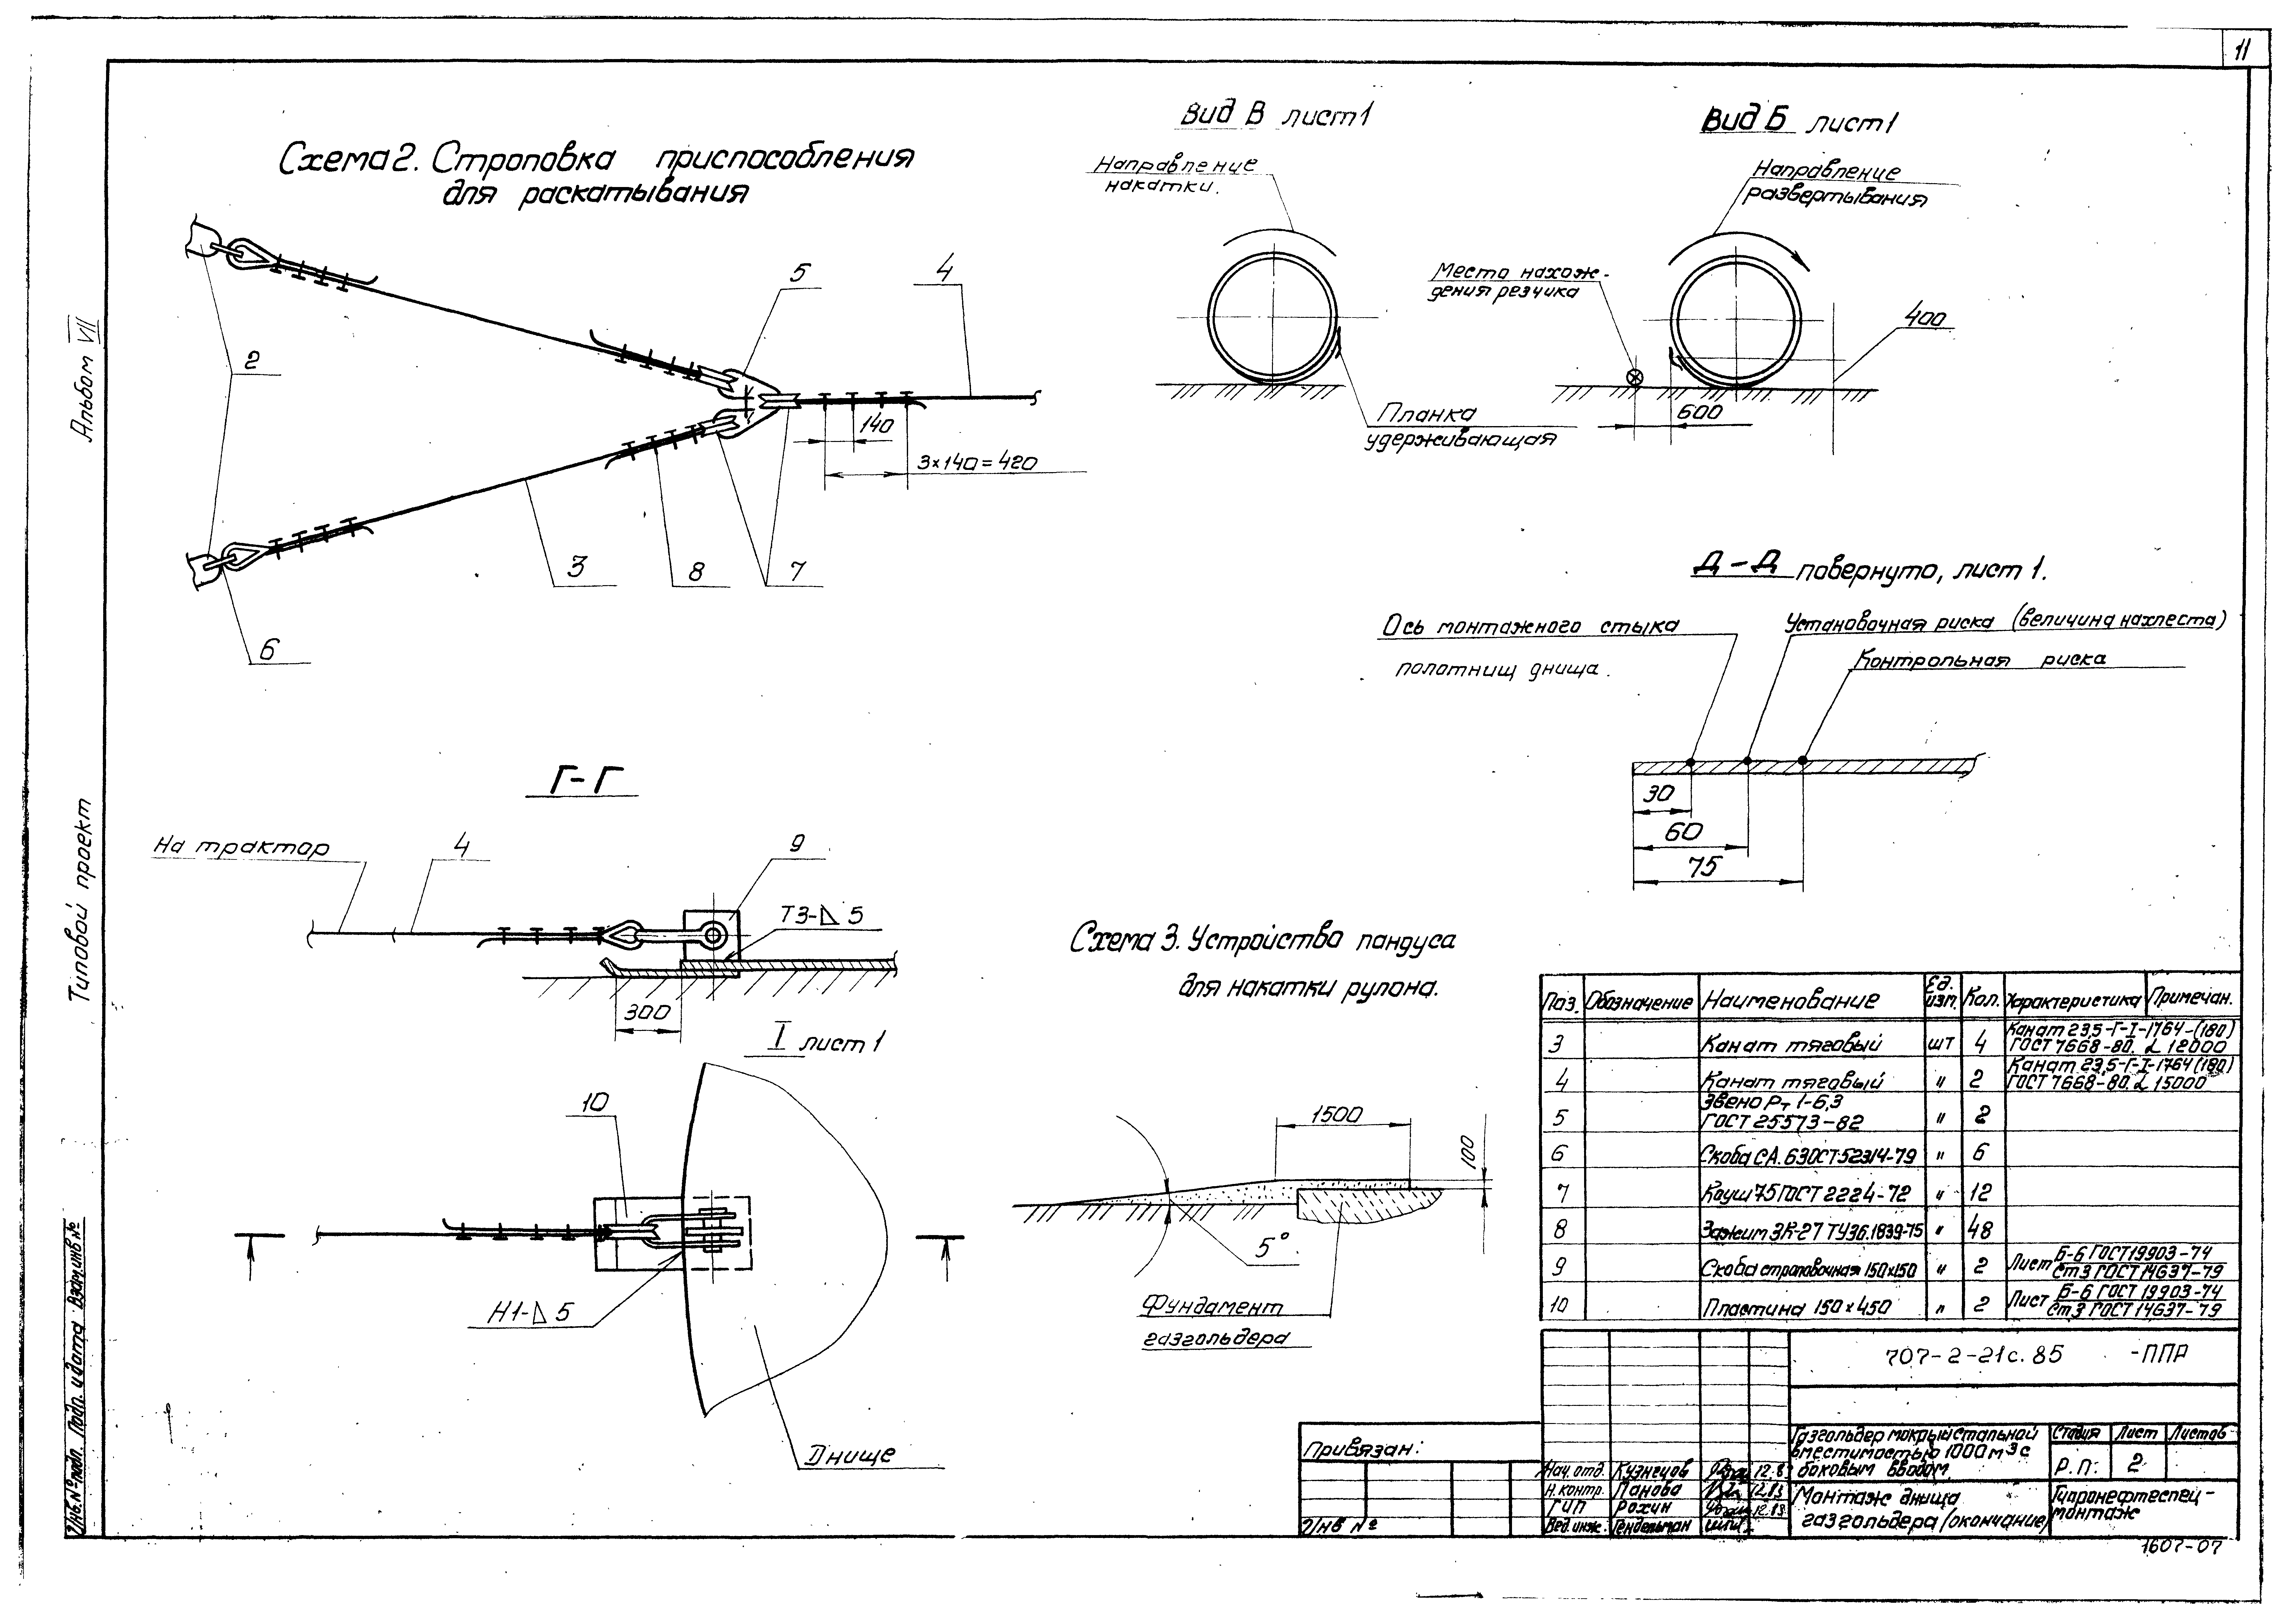 11
Схема 2. Строповка приспособления
для раскатывания
2
5
4
140
3×140=420
3
8
7
6
Вид В лист 1
Направление
накатки.
Планка
удерживающая
Вид Б лист 1
Направление
развертывания
Место нахож-
дения резчика
400
600
Д-Д повернуто, лист 1.
Ось монтажного стыка
полотнищ днища.
Установочная риска (величина нахлеста)
Контрольная риска
30
60
75
Г-Г
На трактор
4
9
Т3-⊿ 5
300
I лист 1
10
Н1-⊿ 5
Днище
Схема 3. Устройство пандуса
для накатки рулона.
1500
100
5°
Фундамент
газгольдера
Поз. Обозначение Наименование Ед. изм. Кол. Характеристика Примечан.
3 Канат тяговый шт 4 Канат 23,5-Г-I-1764-(180) ГОСТ 7668-80. L 12000
4 Канат тяговый " 2 Канат 23,5-Г-I-1764(180) ГОСТ 7668-80. L 15000
5 Звено Рт 1-6,3 ГОСТ 25573-82 " 2
6 Скоба СА. 63 ОСТ 52314-79 " 6
7 Коуш 75 ГОСТ 2224-72 " 12
8 Зажим ЗК-27 ТУ36.1839-75 " 48
9 Скоба строповочная 150×150 " 2 Лист Б-6 ГОСТ 19903-74 Ст3 ГОСТ 14637-79
10 Пластина 150×450 " 2 Лист Б-6 ГОСТ 19903-74 Ст3 ГОСТ 14637-79
707-2-21с.85 -ППР
Газгольдер мокрый стальной
вместимостью 1000 м3 с
боковым вводом.
Стадия Лист Листов
Р.п. 2
Монтаж днища
газгольдера (окончание)
Гипронефтеспец-
монтаж
Привязан:
Инв №
Нач. отд. Кузнецов 12.8
Н. контр. Панова 12.83
ГИП Рохин 12.83
Вед. инж. Гендельман
1607-07
Альбом VII
Типовой проект
Инв. № подл. Подп. и дата Взам. инв №